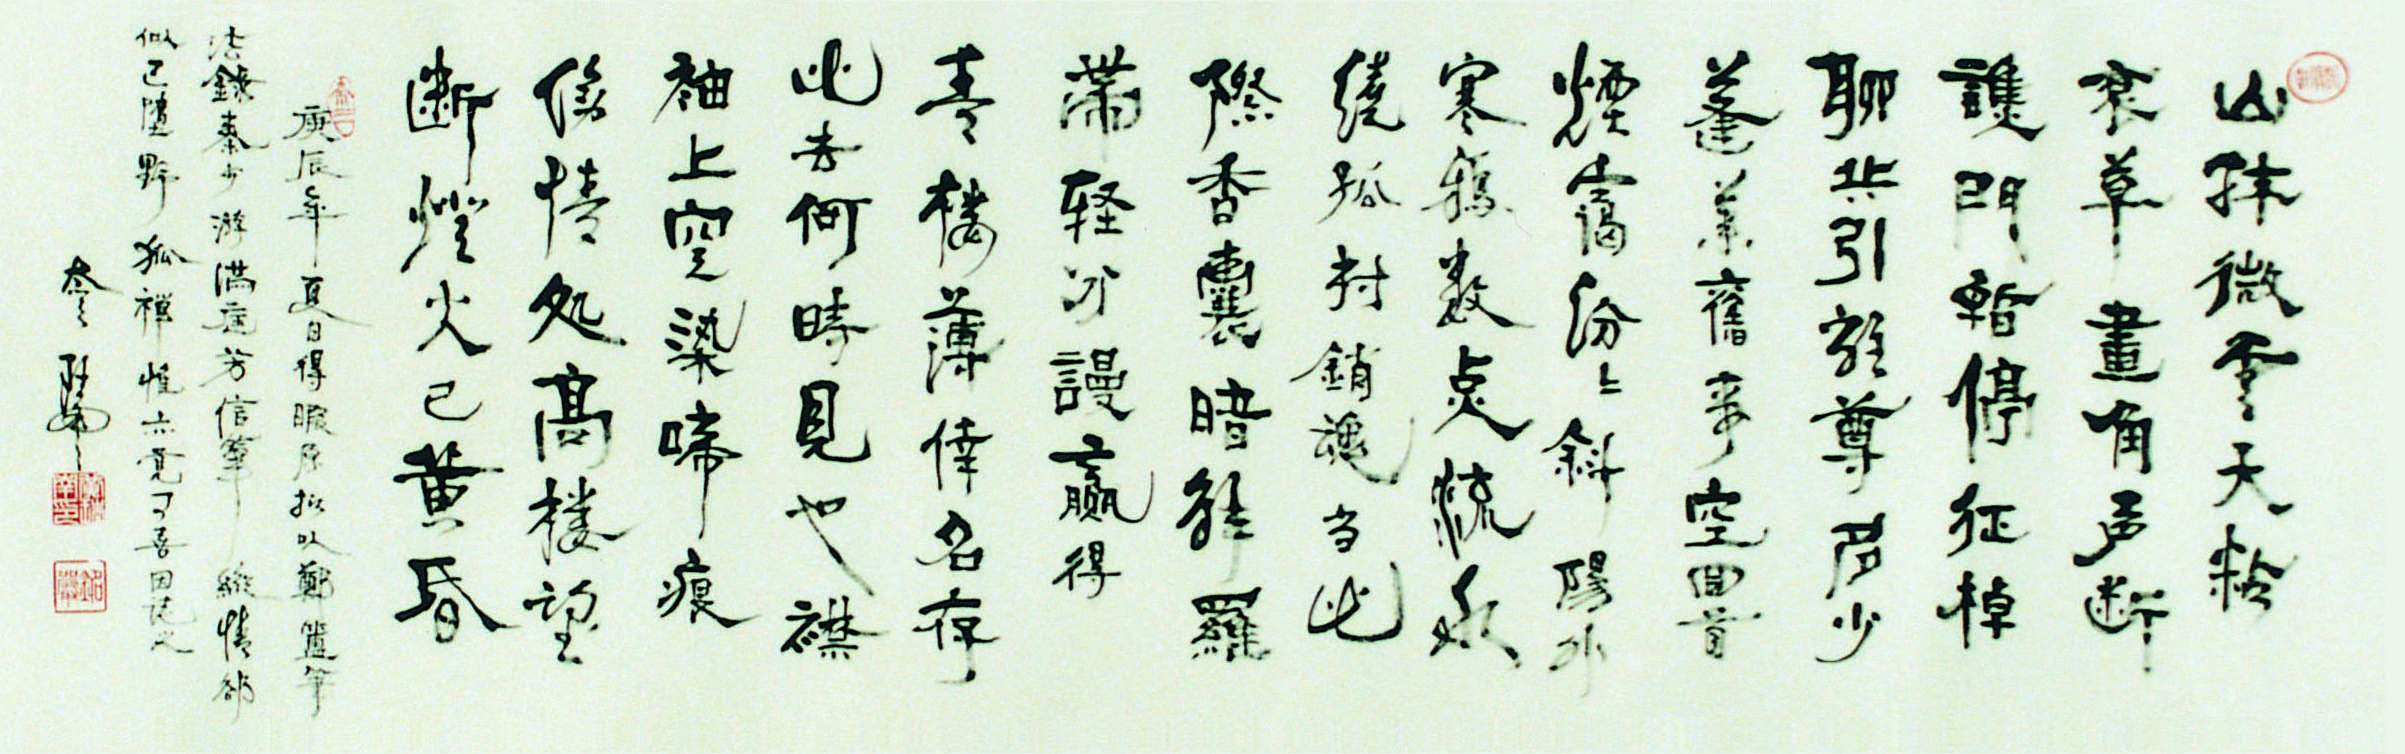 山抹微雲天粘
衰草畫角声断
譙門暫停征棹
聊共引離尊多少
蓬萊舊事空回首
煙靄紛々斜陽外
寒鴉数点流水
繞孤村銷魂当此
際香囊暗解羅
帶轻分謾贏得
青樓薄倖名存
此去何時見也襟
袖上空染啼痕
傷情处高樓望
断燈火已黄昏
庚辰年夏日得暇居拟以鄭簠筆
法錄秦少游满庭芳信筆縱情郤
似已墮野狐禅惟亦覚可喜因記之